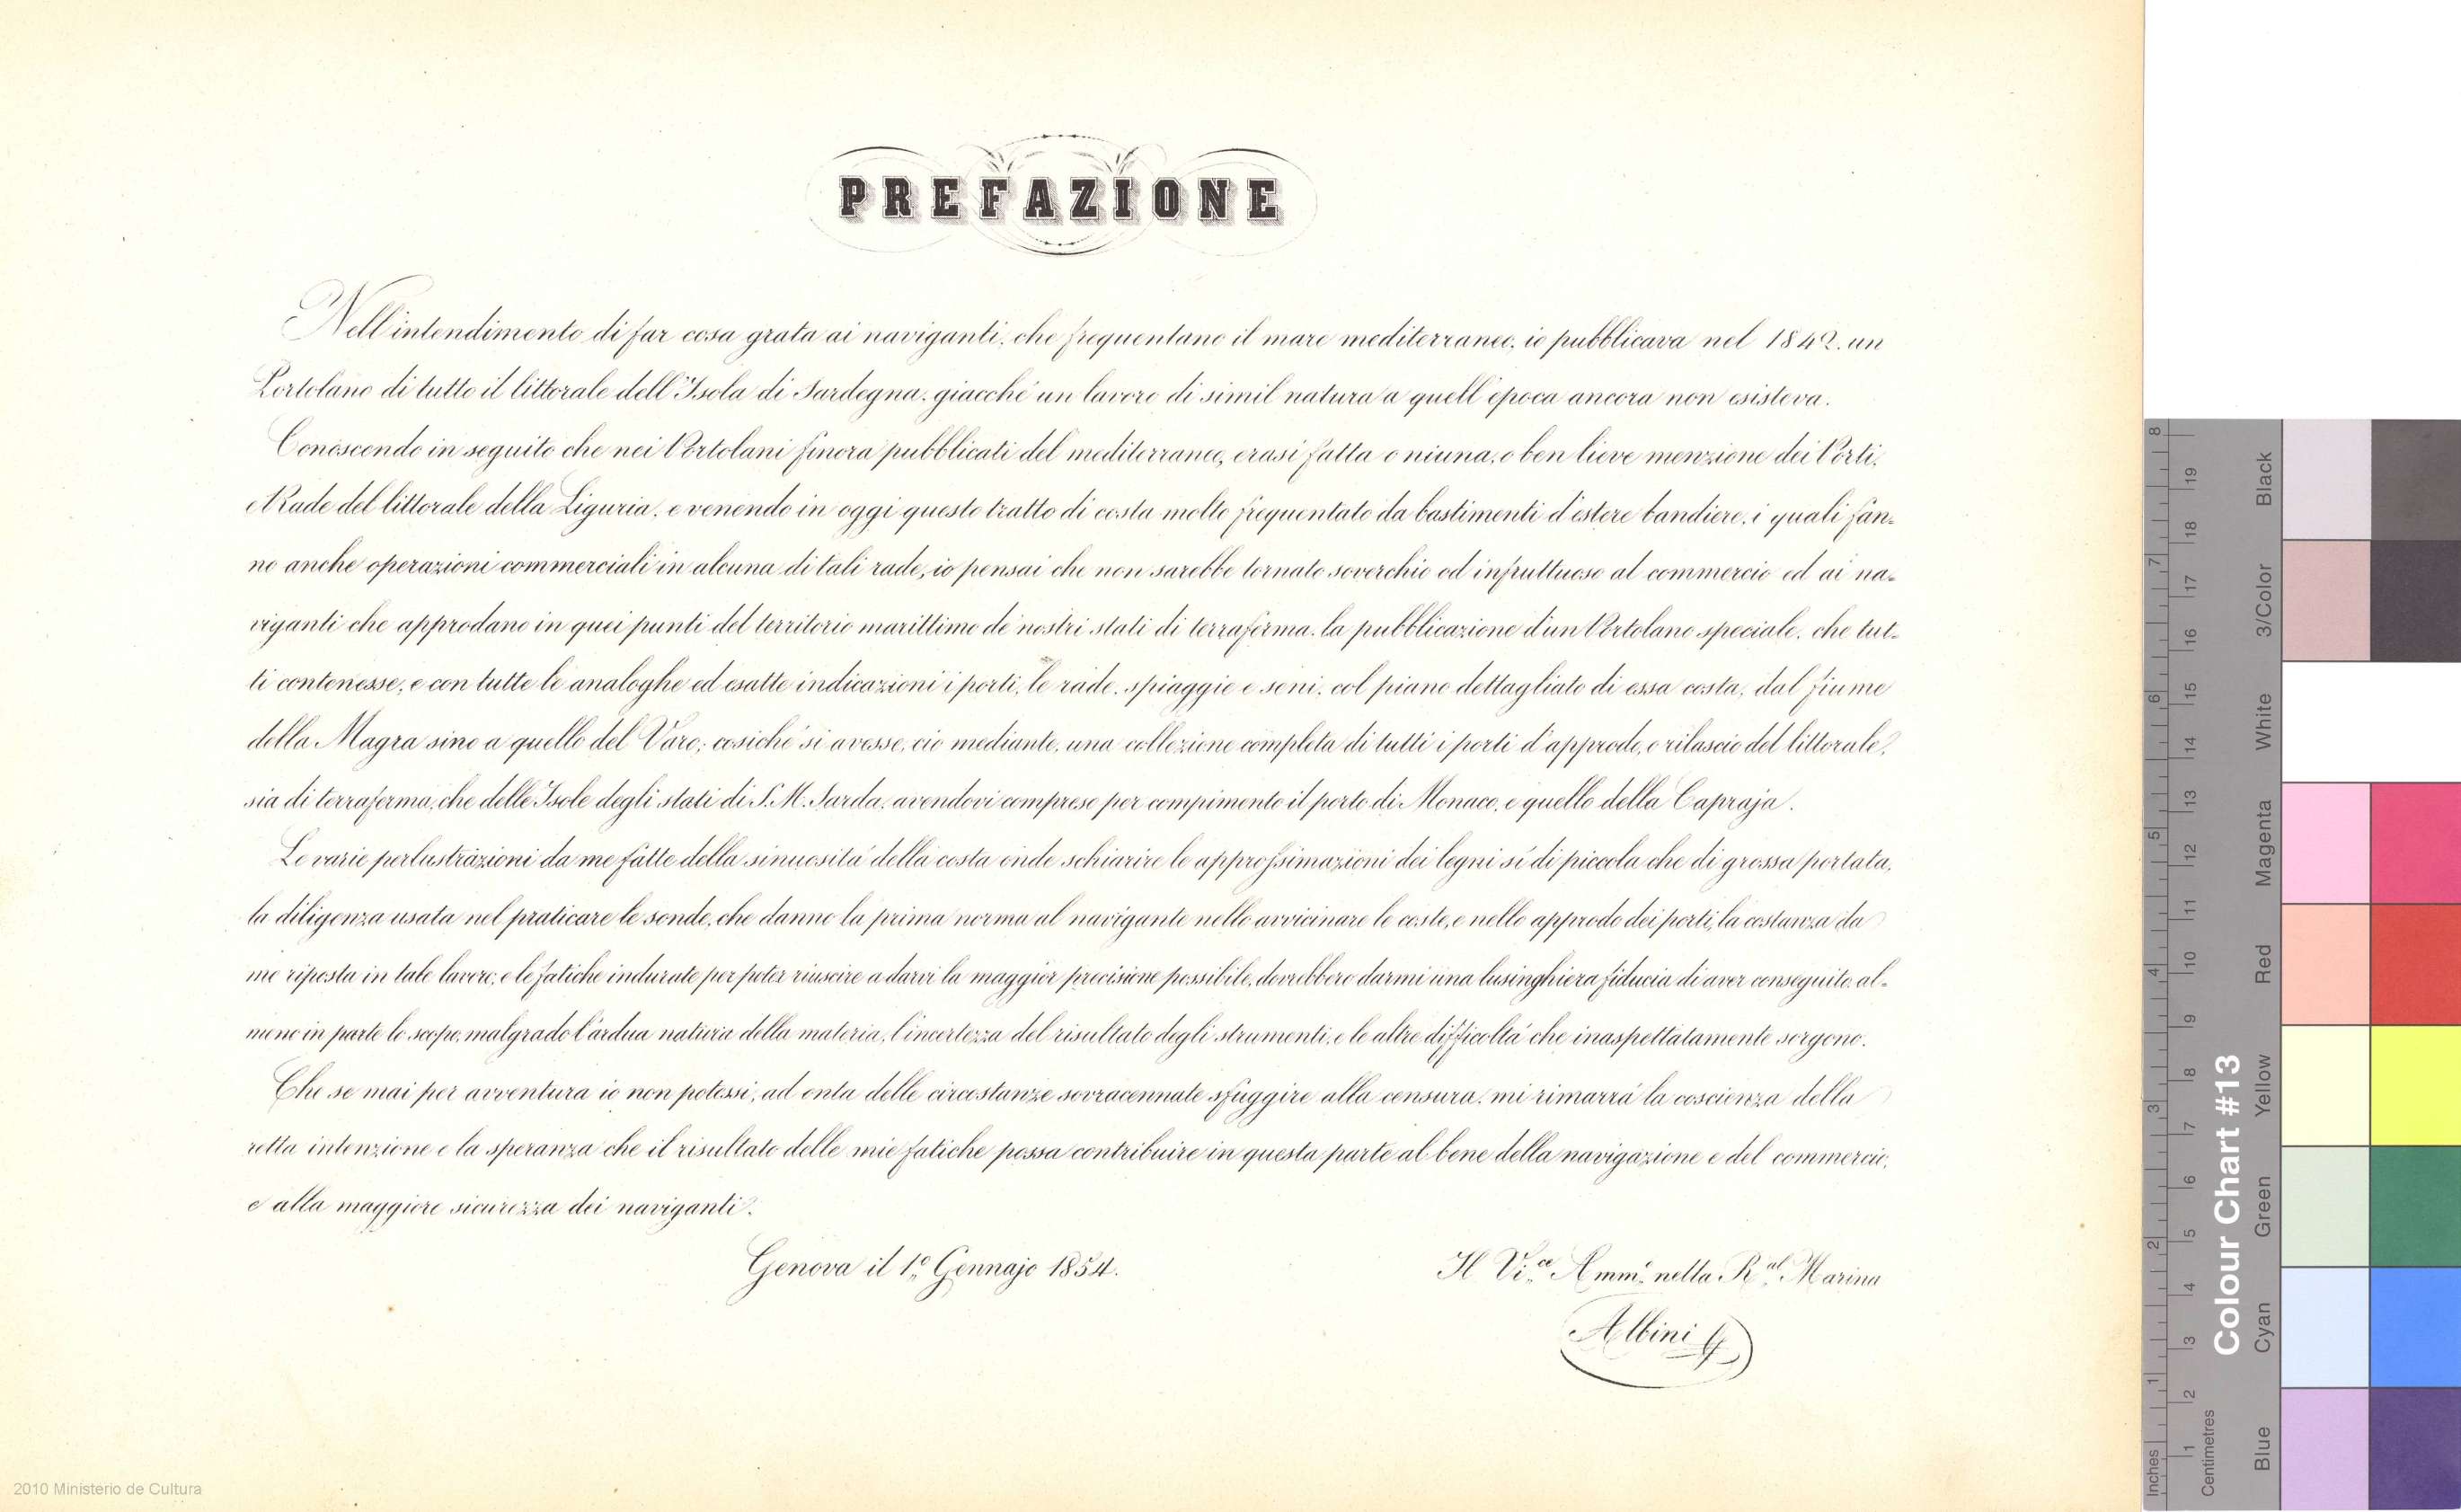 PREFAZIONE
Nell'intendimento di far cosa grata ai naviganti, che frequentano il mare mediterraneo, io pubblicava nel 1842. un
Portolano di tutto il littorale dell'Isola di Sardegna, giacché un lavoro di simil natura a quell'epoca ancora non esisteva.
Conoscendo in seguito che nei Portolani finora pubblicati del mediterraneo, erasi fatta o niuna, o ben lieve menzione dei Porti,
e Rade del littorale della Liguria, e venendo in oggi questo tratto di costa molto frequentato da bastimenti d'estere bandiere, i quali fan=
no anche operazioni commerciali in alcuna di tali rade, io pensai che non sarebbe tornato soverchio ed infruttuoso al commercio ed ai na=
viganti che approdano in quei punti del territorio marittimo de' nostri stati di terraferma, la pubblicazione d'un Portolano speciale, che tut=
ti contenesse, e con tutte le analoghe ed esatte indicazioni i porti, le rade, spiaggie e seni, col piano dettagliato di essa costa, dal fiume
della Magra sino a quello del Varo; cosiché si avesse, ciò mediante, una collezione completa di tutti i porti d'approdo, e rilascio del littorale,
sia di terraferma, che delle Isole degli stati di S. M. Sarda, avendovi compreso per compimento il porto di Monaco, e quello della Capraja.
Le varie perlustrazioni da me fatte della sinuosità della costa onde schiarire le approssimazioni dei legni sì di piccola che di grossa portata,
la diligenza usata nel praticare le sonde, che danno la prima norma al navigante nello avvicinare le coste, e nello approdo dei porti, la costanza da
me riposta in tale lavoro, e le fatiche indurate per poter riuscire a darvi la maggior precisione possibile, dovrebbero darmi una lusinghiera fiducia di aver conseguito al=
meno in parte lo scopo, malgrado l'ardua natura della materia, l'incertezza del risultato degli strumenti, e le altre difficoltà che inaspettatamente sorgono.
Che se mai per avventura io non potessi, ad onta delle circostanze sovracennate sfuggire alla censura, mi rimarrà la coscienza della
retta intenzione e la speranza che il risultato delle mie fatiche possa contribuire in questa parte al bene della navigazione e del commercio,
e alla maggiore sicurezza dei naviganti.
Genova il 1.º Gennajo 1854.
Il Vi.ce Amm.º nella R.al Marina
Albini
2010 Ministerio de Cultura
Colour Chart #13
Black 3/Color White Magenta Red Yellow Green Cyan Blue
8 7 6 5 4 3 2 1 Inches
19 18 17 16 15 14 13 12 11 10 9 8 7 6 5 4 3 2 1 Centimetres